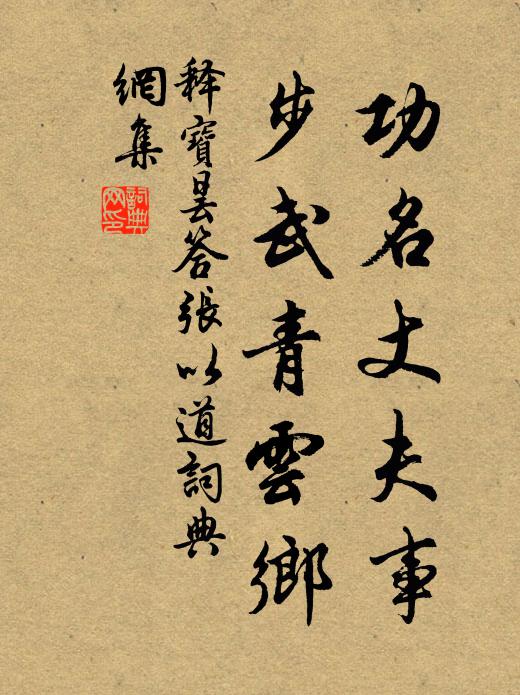 功名丈夫事
步武青雲鄉
释寶昙答張以道詞典
網集
詞典
网印